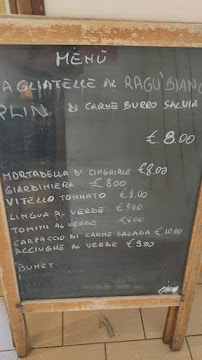 MENÙ
TAGLIATELLE AL RAGU' BIANCO
PLIN DI CARNE BURRO SALVIA
€ 8.00
MORTADELLA DI CINGHIALE €8.00
GIARDINIERA €8.00
VITELLO TONNATO €8.00
LINGUA AL VERDE €8.00
TOMINI AL VERDE €8.00
CARPACCIO DI CARNE SALADA €10.00
ACCIUGHE AL VERDE €9.00
BUNET